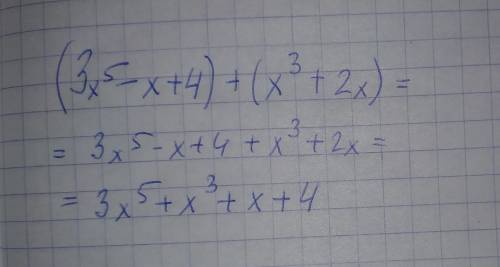 (3x⁵ - x + 4) + (x³ + 2x) =
= 3x⁵ - x + 4 + x³ + 2x =
= 3x⁵ + x³ + x + 4